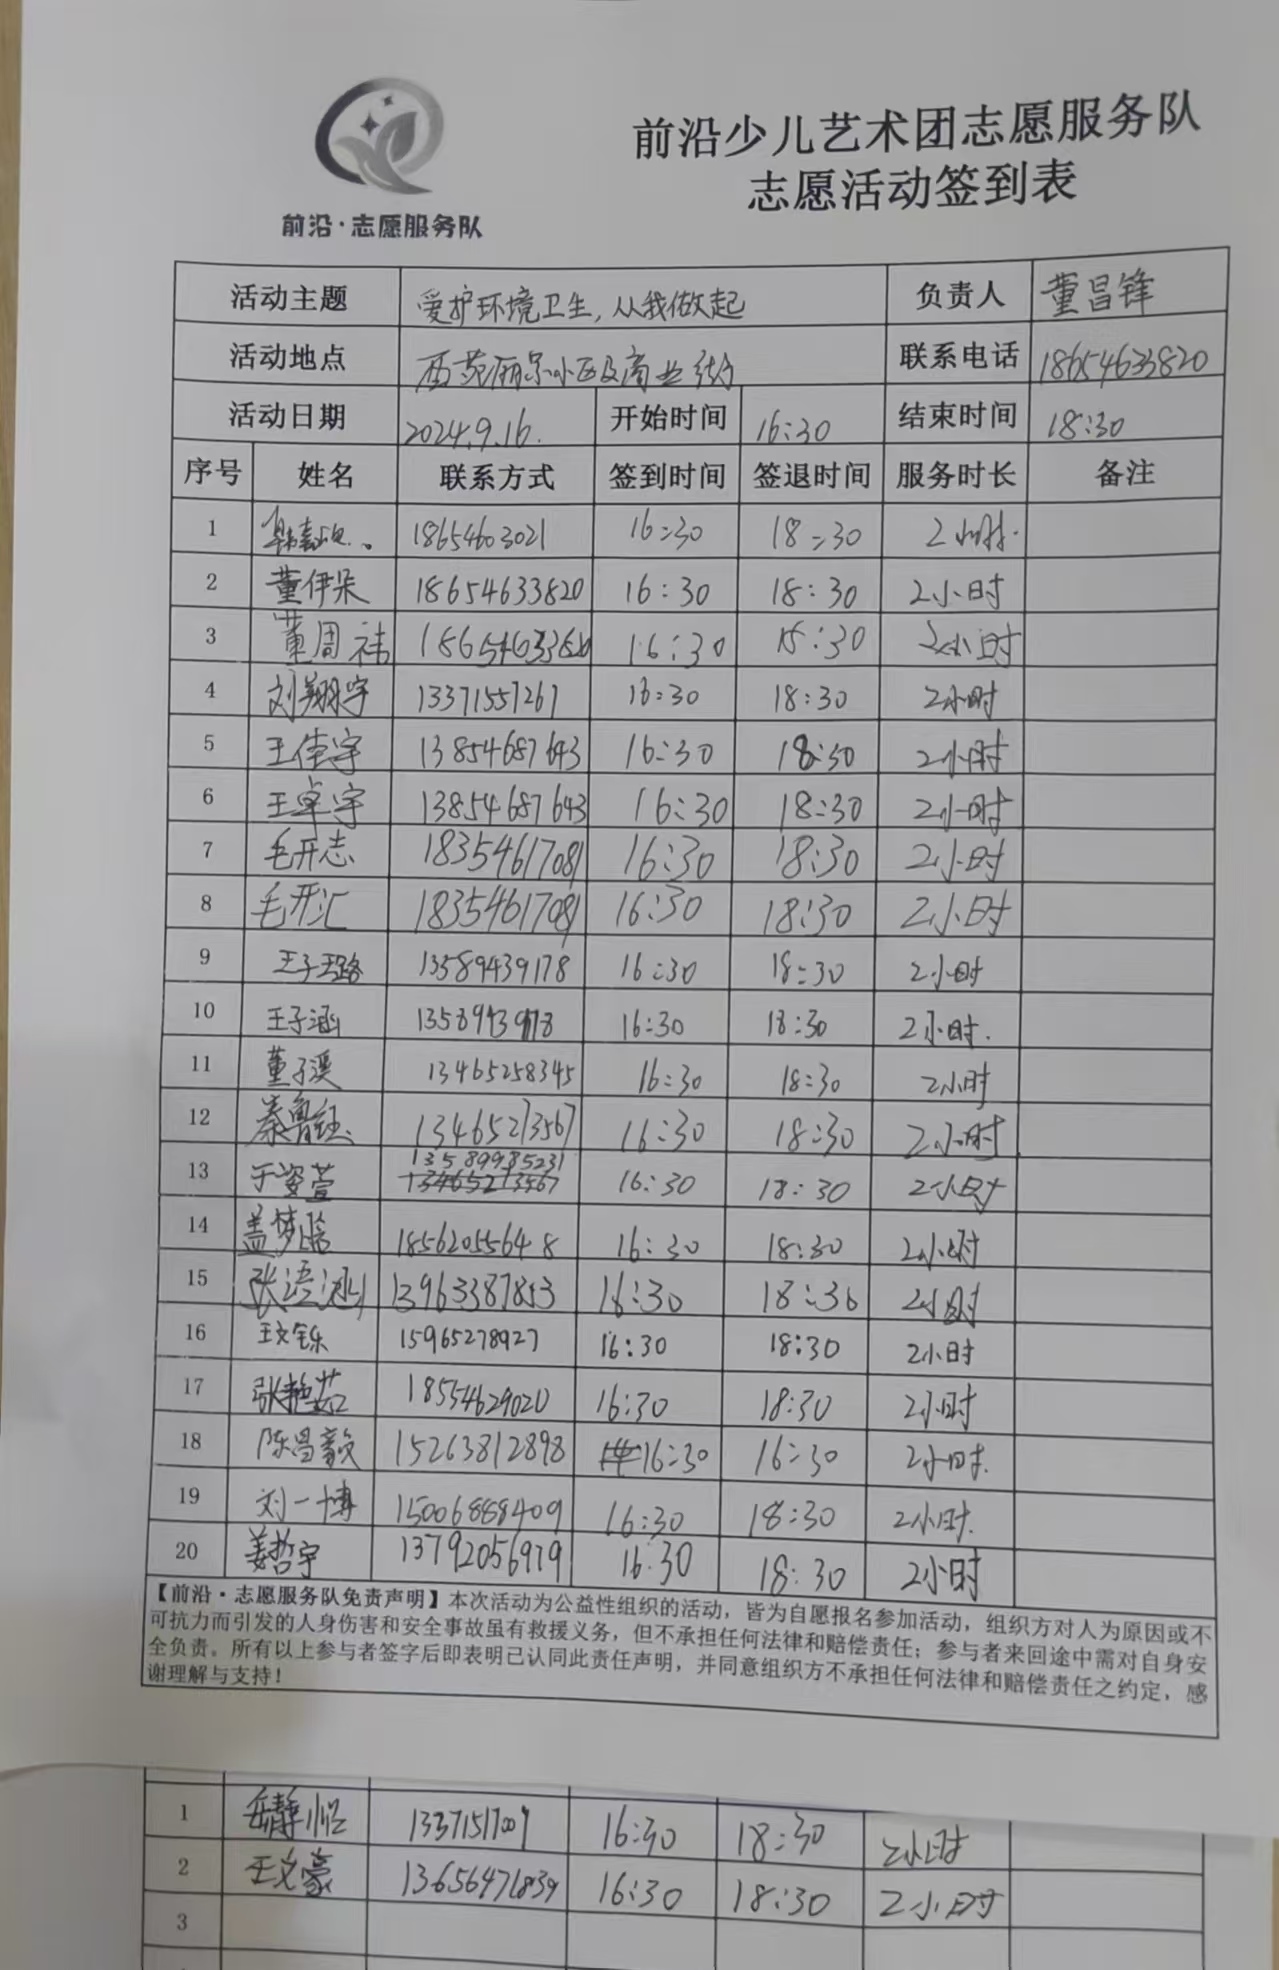 前沿·志愿服务队
前沿少儿艺术团志愿服务队
志愿活动签到表
活动主题 爱护环境卫生，从我做起 负责人 董昌锋
活动地点 西苑丽景小区及商业街 联系电话 18654633820
活动日期 2024.9.16. 开始时间 16:30 结束时间 18:30
序号 姓名 联系方式 签到时间 签退时间 服务时长 备注
1 18654603021 16:30 18:30 2小时.
2 董伊朵 18654633820 16:30 18:30 2小时
3 董周祎 18654633820 16:30 18:30 2小时
4 刘翔宇 13371557267 16:30 18:30 2小时
5 王佳宇 13854687643 16:30 18:30 2小时
6 王卓宇 13854687643 16:30 18:30 2小时
7 毛开志 18354617081 16:30 18:30 2小时
8 毛开汇 18354617081 16:30 18:30 2小时
9 王子璐 13589439178 16:30 18:30 2小时
10 王子涵 13589439178 16:30 18:30 2小时.
11 董子溪 13465258345 16:30 18:30 2小时
12 秦鲁钰 13465273567 16:30 18:30 2小时
13 于姿萱 13589985231 16:30 18:30 2小时
14 盖梦晗 18562055648 16:30 18:30 2小时
15 张语涵 13963387853 16:30 18:30 2小时
16 王文铄 15965278927 16:30 18:30 2小时
17 张艳茹 18554629020 16:30 18:30 2小时
18 陈昌毅 15263812898 16:30 16:30 2小时.
19 刘一博 15006858409 16:30 18:30 2小时.
20 姜哲宇 13792056979 16:30 18:30 2小时
【前沿·志愿服务队免责声明】本次活动为公益性组织的活动，皆为自愿报名参加活动，组织方对人为原因或不
可抗力而引发的人身伤害和安全事故虽有救援义务，但不承担任何法律和赔偿责任；参与者来回途中需对自身安
全负责。所有以上参与者签字后即表明已认同此责任声明，并同意组织方不承担任何法律和赔偿责任之约定，感
谢理解与支持！
1 岳静怡 13371517007 16:30 18:30 2小时
2 王文豪 13656471839 16:30 18:30 2小时
3